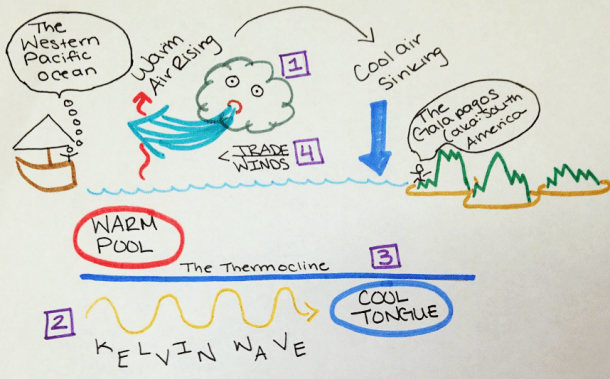 The
Western
Pacific
ocean
Warm
Air Rising
1
Cool air
Sinking
The
Galapagos
(aka: South
America)
< TRADE
WINDS
4
WARM
POOL
The Thermocline
3
2
KELVIN WAVE
COOL
TONGUE